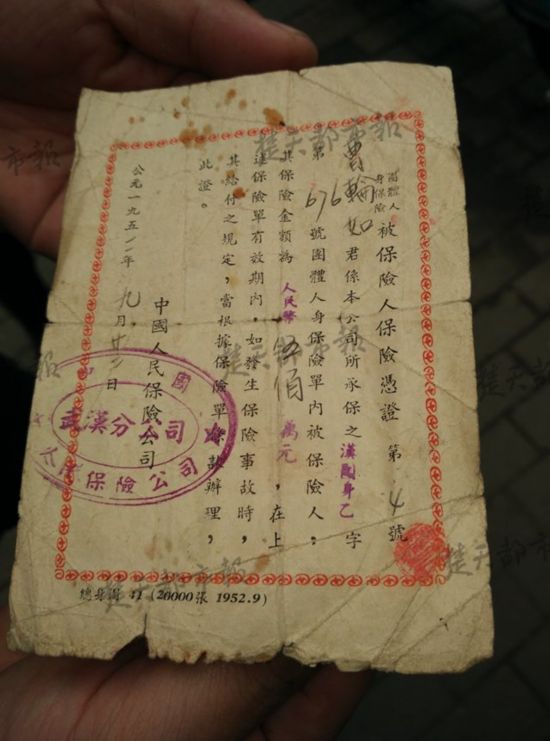 團體人
身保險
被保險人保險憑證　第4號
曹輪如君係本公司所承保之漢團身乙字
第676號團體人身保險單內被保險人，
其保險金額為人民幣伍佰萬元，在上
達保險單有效期內，如發生保險事故時，
其給付之規定，當根據保險單條款辦理，
此證。
中國人民保險公司
公元一九五二年九月廿二日
武漢分公司
保險公司
(20000張 1952.9)
楚天都市報
楚天都市報
楚天都市報
楚天都市報